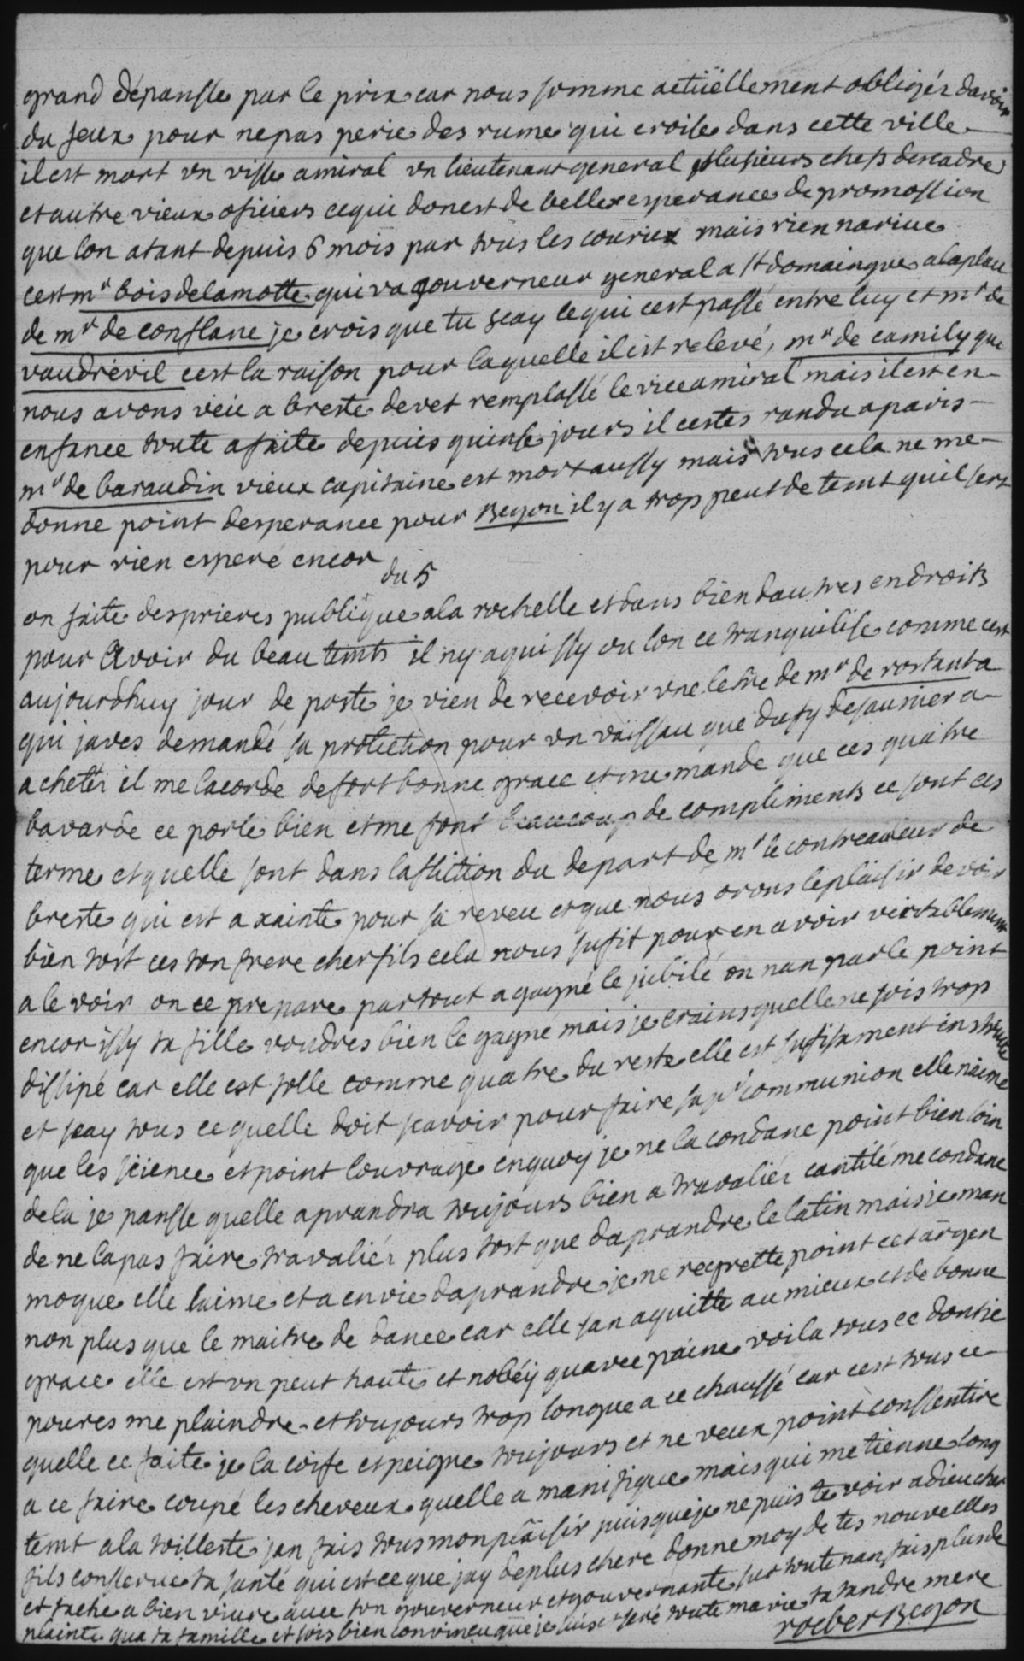 grand dépansse par le prix car nous somme actüellement obligér davoir
du feux pour nepas perir des rume qui croise dans cette ville
il est mort un visse amiral un lieutenant general plusieurs chefs descadre
et autre vieux oficiers cequi donest de belle esperance de promossion
que lon atant depuis 6 mois par tous les courier mais rien narive
cest mr bois delamotte qui va gouverneur general a st domaingue alaplace
de mr de conflane je crois que tu scay cequi cest passé entre luy et mr de
vaudrévil cest la raison pour laquelle il est relevé, mr de camily que
nous avons veü a breste devet remplassé le vice amiral mais il est en
enfance toute afaite depuis quinse jours il cestes randu aparis
mr de baraudin vieux capitaine est mort aussy mais tous cela ne me
donne point desperance pour Begon il y a trop peut de temt quil sert
pour rien esperé encor
du 5
on faite desprieres publique ala rochelle et dans bien dautres endroits
pour avoir du beau temts il ny aquissy ou lon ce tranquilise comme cest
aujourdhuy jour de poste je vien de recevoir une letre de mr de rostant a
qui javes demandé sa protection pour un vaissau que dupy desaunier a
acheter il me lacorde defort bonne grace et me mande que ces quatre
bavarde ce porte bien et me font beaucoup de compliments ce sont ces
terme et quelle sont dans lafliction du depart de mr le contreauleur de
breste qui est a xainte pour sa reveu et que nous avons leplaisir devoir
bien tost ces ton frere cherfils cela nous sufit pour en avoir veritablement
a le voir on ce prepare partout agagné le jubilé on nan parle point
encor issy ta fille voudres bien le gagne mais je crains quelle ne sois trop
dissipé car elle est folle comme quatre du reste elle est sufisament instruite
et scay tous cequelle doit scavoir pour faire sa pr communion elle naime
que les science et point louvrage enquoy je ne la condane point bien loin
dela je pansse quelle aprandra toujours bien a travalier cantité me condane
de ne lapas faire travalier plus tost que daprandre le latin mais je man
moque elle laime et a envie daprandre je ne regrette point cet argen
non plus que le maitre de dance car elle san aquitte au mieux et de bonne
grace elle est un peut haute et nobéy quavec paine voila tous ce dont je
poures me plaindre et toujours trop longue a ce chaussé car cest tous ce
quelle ce faite je la coife et peigne toujours et ne veux point conssentire
a ce faire coupé les cheveux quelle a manifique mais qui me tienne long
temt ala toillette jan fais tous mon plaisir puisque je ne puis te voir adieu cher
fils conserve ta santé qui est ce que jay deplus chere donne moy de tes nouvelles
et tache a bien vivre avec ton gouverneur et gouvernante sur toute nan fais plus de
plainte qua ta famille et sois bien convincu que je suis seré toute ma vie ta tandre mere
rocber Begon